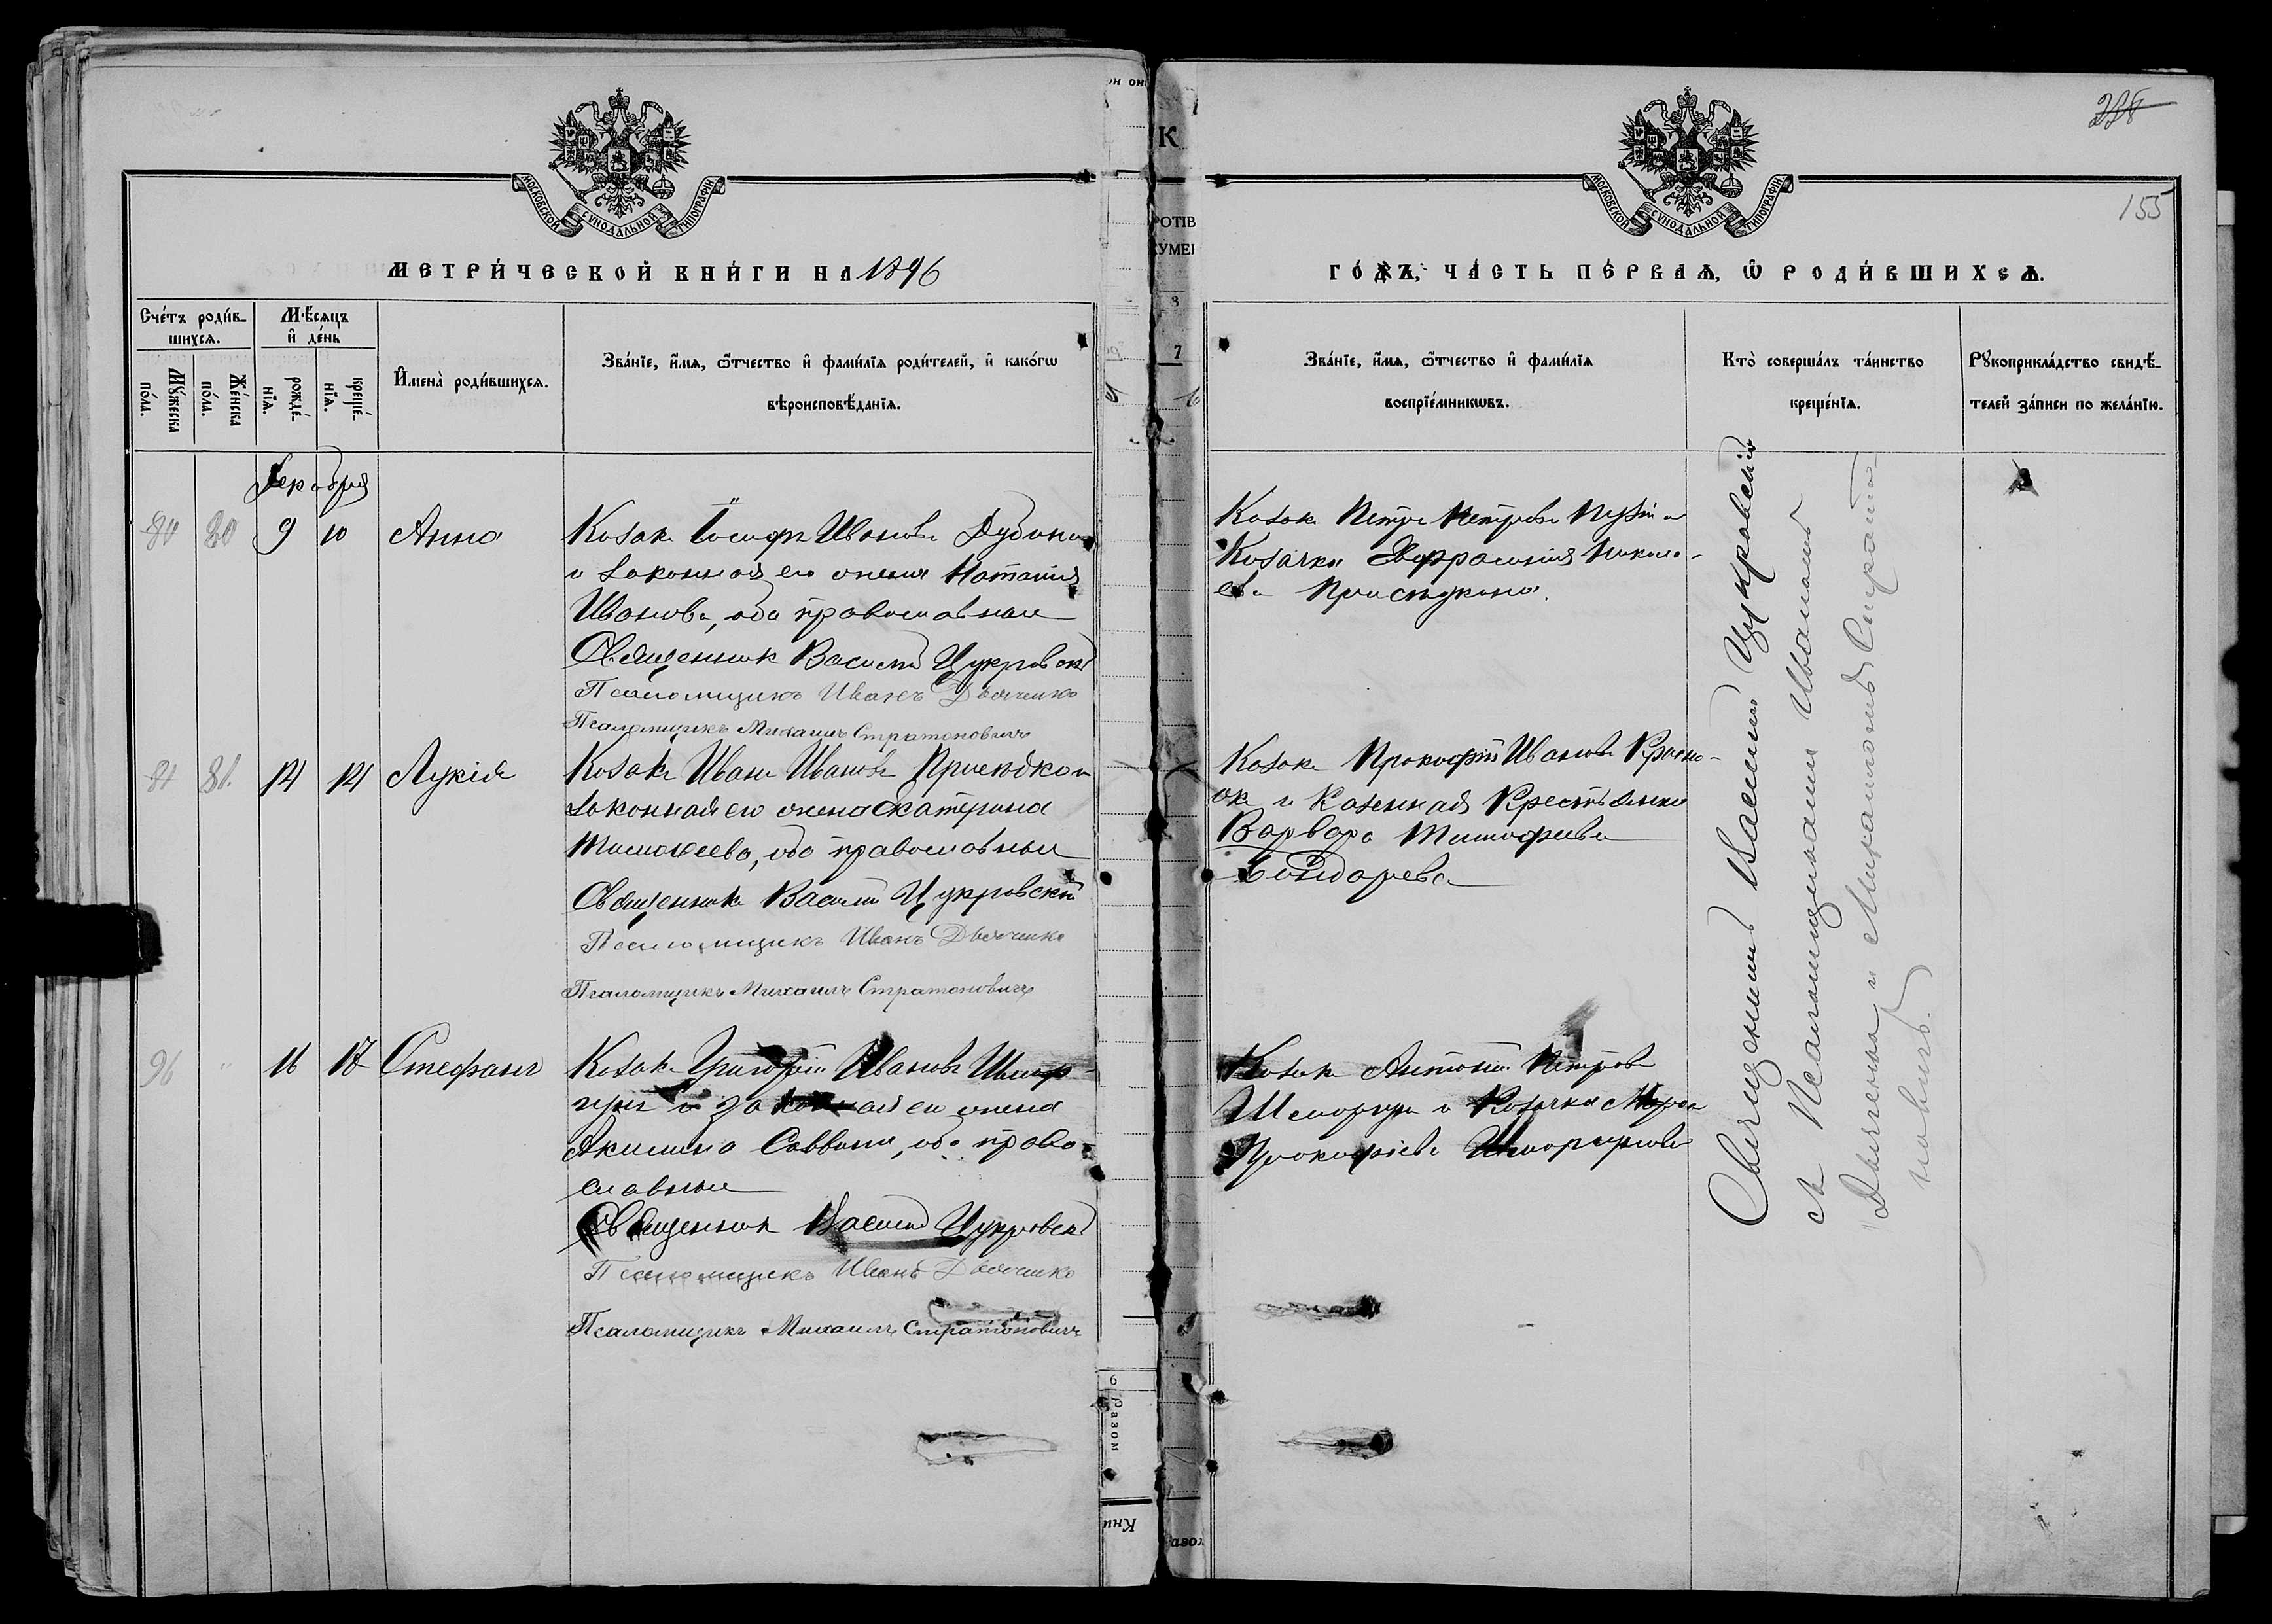 МОСКОВСКОЙ СѴНОДАЛЬНОЙ ТИПОГРАФІИ
МЕТРИ́ЧЕСКОЙ КНИ́ГИ НА 1896
Сче́тъ роди́в-
шихсѧ.
Мѣ́сѧцъ
и҆ де́нь
Мꙋ́жеска
по́ла.
Же́нска
по́ла.
рожде́-
нїѧ.
креще́-
нїѧ.
И҆мена̀ роди́вшихсѧ.
Зва́нїе, и҆́мѧ, ѻ҆́тчество и҆ фами́лїѧ роди́телей, и҆ како́гѡ
вѣроисповѣ́данїѧ.
Декабря
80 9 10 Анна
Козакъ Іосифъ Ивановъ Дубина
и законная его жена Наталія
Иванова, оба православные
Священникъ Василій Цукровскій
Псаломщикъ Иванъ Дьяченко
Псаломщикъ Михаилъ Стратоновичъ
81 81. 14 14 Лукія
Козакъ Иванъ Ивановъ и
законная его жена Екатерина
Тимофеева, оба православные
Священникъ Василій Цукровскій
Псаломщикъ Иванъ Дьяченко
Псаломщикъ Михаилъ Стратоновичъ
96 " 16 17 Стефанъ
Козакъ Григорій Ивановъ
и законная его жена
Акилина Саввина, оба право-
славные
Священникъ Василій Цукровскій
Псаломщикъ Иванъ Дьяченко
Псаломщикъ Михаилъ Стратоновичъ
228
155
МОСКОВСКОЙ СѴНОДАЛЬНОЙ ТИПОГРАФІИ
ГО́ДЪ, ЧА́СТЬ ПЕ́РВАѦ, Ѡ҆ РОДИ́ВШИХСѦ.
Зва́нїе, и҆́мѧ, ѻ҆́тчество и҆ фами́лїѧ
воспрїе́мникѡвъ.
Кто̀ соверша́лъ та́инство
креще́нїѧ.
Рꙋкоприкла́дство свидѣ́-
телей за́писи по жела́нїю.
Козакъ Петръ Петровъ и
Козачка Евфросинія Никола-
ева
Козакъ Прокофій Ивановъ
и Казенная Крестьянка
Варвара Тимофеева
Бондарева
Козакъ Антоній Петровъ
и Козачка
Прокофіева
Священникъ Василій Цукровскій
съ Псаломщиками Иваномъ
Дьяченко и Михаиломъ Страто-
новичъ.
Разом
Кни